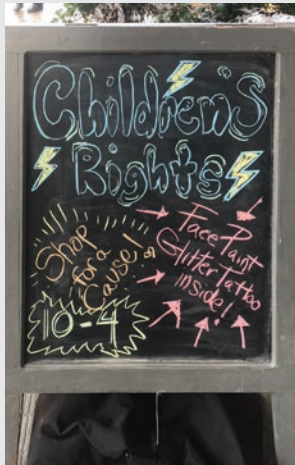 Children's
Rights
Shop
for a
Cause!
10-4
Face Paint
Glitter Tattoo
inside!